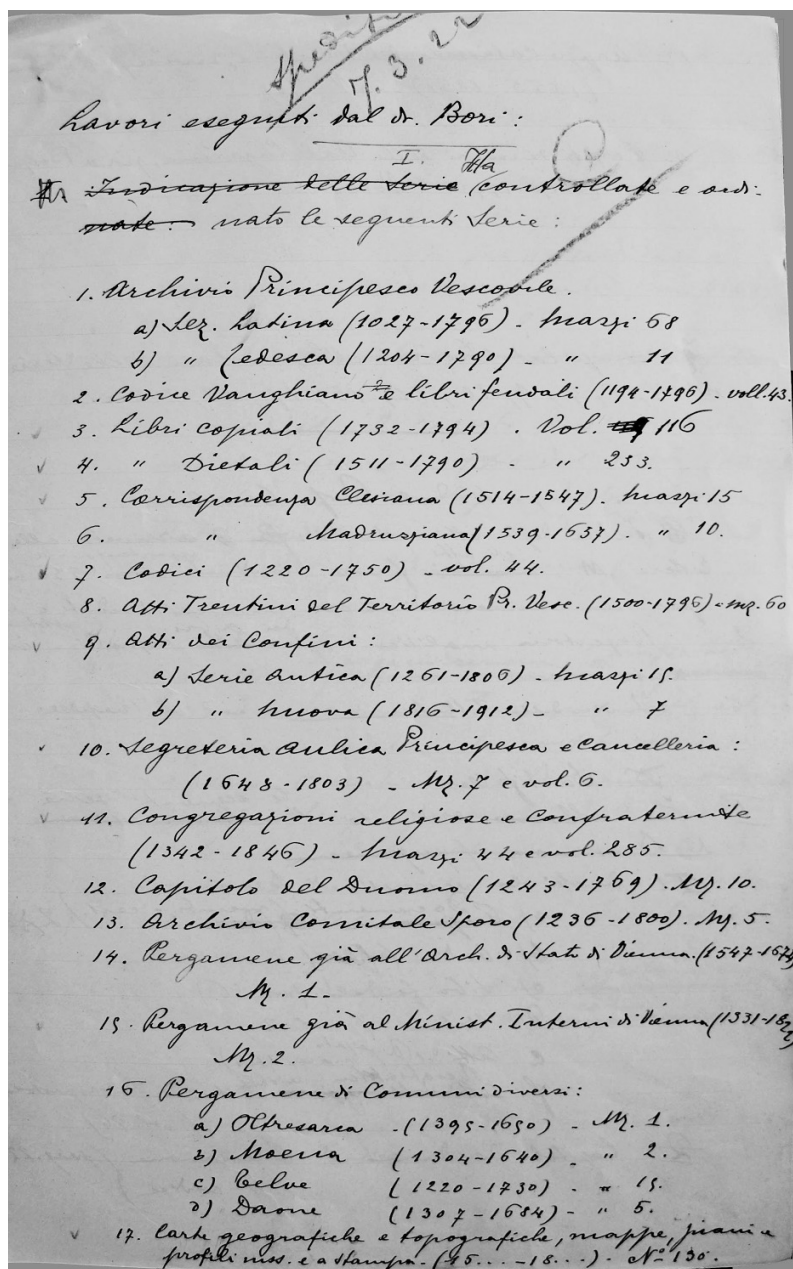 Spedito
7.3.22
Lavori eseguiti dal dr. Bori:
I.
Ha
Indicazione delle Serie controllate e ordi-
nate: nato le seguenti Serie:
1. Archivio Principesco Vescovile.
a) Sez. Latina (1027-1796) - Mazzi 68
b) " Tedesca (1204-1790) - " 11
2. Codice Vanghiano e libri feudali (1194-1796) - voll. 43.
3. Libri copiali (1732-1794) . Vol. 116
4. " Dietali (1511-1790) - " 233.
5. Corrispondenza Clesiana (1514-1547). Mazzi 15
6. " Madruzziana (1539-1657). " 10.
7. Codici (1220-1750) - vol. 44.
8. Atti Trentini del Territorio Pr. Vesc. (1500-1796) - mz. 60
9. Atti dei Confini:
a) Serie antica (1261-1806) - Mazzi 15.
b) " nuova (1816-1912) - " 7
10. Segreteria Aulica Principesca e Cancelleria:
(1648-1803) - Mz. 7 e vol. 6.
11. Congregazioni religiose e confraternite
(1342-1846) - Mazzi 44 e vol. 285.
12. Capitolo del Duomo (1243-1769). Mz. 10.
13. Archivio Comitale Sporo (1236-1800). Mz. 5.
14. Pergamene già all'Arch. di Stato di Vienna. (1547-1674)
Mz. 1.-
15. Pergamene già al Minist. Interni di Vienna (1331-18
Mz. 2.
16. Pergamene di Comuni diversi:
a) Oltresarca - (1395-1650) - Mz. 1.
b) Moena (1304-1640) - " 2.
c) Telve (1220-1730) - " 15.
d) Daone (1307-1684) - " 5.
17. Carte geografiche e topografiche, mappe, piani e
profili mss. e a stampa. (15... -18...) - Nº 130.